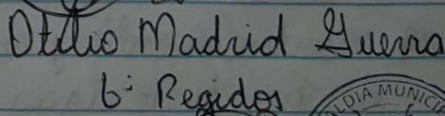 Otilio Madrid Guerra
6: Regidos
LDIA MUNICI